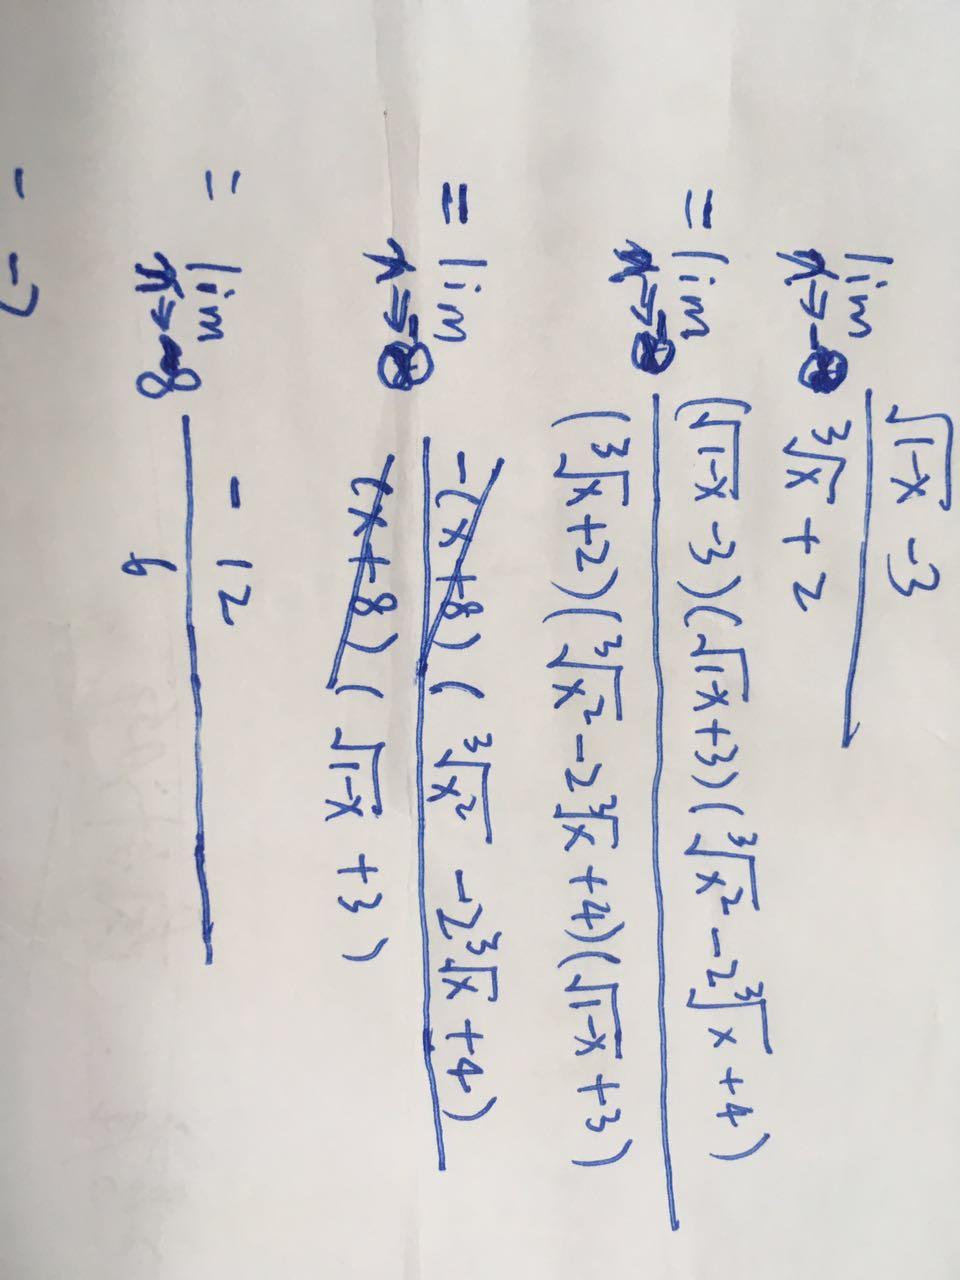 lim x→-8 (√(1-x) -3)/(∛x + 2)
= lim x→-8 ((√(1-x) -3)(√(1-x) +3)(∛x² -2∛x +4))/((∛x +2)(∛x² -2∛x +4)(√(1-x) +3))
= lim x→-8 (-(x+8)(∛x² -2∛x +4))/((x+8)(√(1-x) +3))
= lim x→-8 (-12)/6